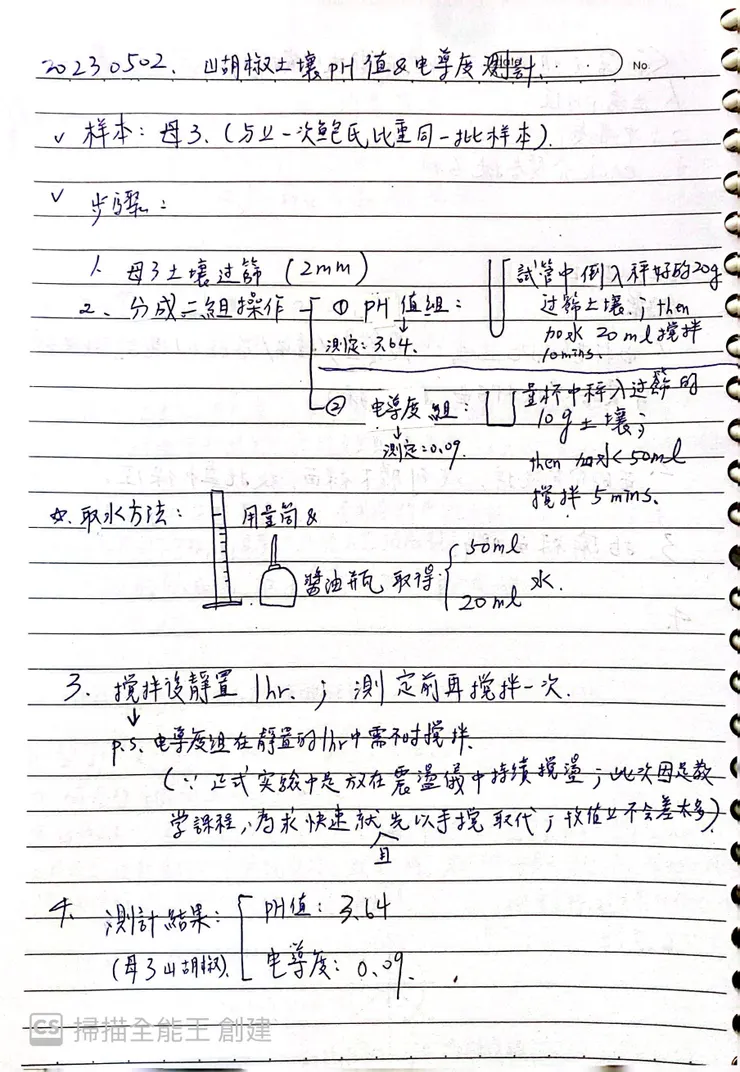 20230502. 山胡椒土壤 pH 值 & 电導度 測計.
No.
v 样本: 母3. (与上一次鮑氏比重同一批样本).
v 步驟:
1. 母3土壤过篩 (2mm)
2. 分成二組操作
① pH 值組:
測定: 3.64.
試管中倒入秤好的20g
过篩土壤.; then
加水 20 ml 攪拌
10 mins.
② 电導度組:
測定: 0.09.
量杯中秤入过篩的
10g 土壤;
then 加水 50ml
攪拌 5 mins.
☆. 取水方法:
用量筒 &
醬油瓶 取得
50ml
20 ml
水.
3. 攪拌後靜置 1hr. ; 測定前再攪拌一次.
↓
p.s. 电導度組在靜置的1hr中需不时攪拌.
(∵ 正式实驗中是放在震盪儀中持續搅盪; 此次因是教
学課程, 為求快速就先以手搅取代; 數值上不会差太多)
且
4. 測計結果:
(母3山胡椒).
pH值: 3.64
电導度: 0.09.
CS 掃描全能王 創建